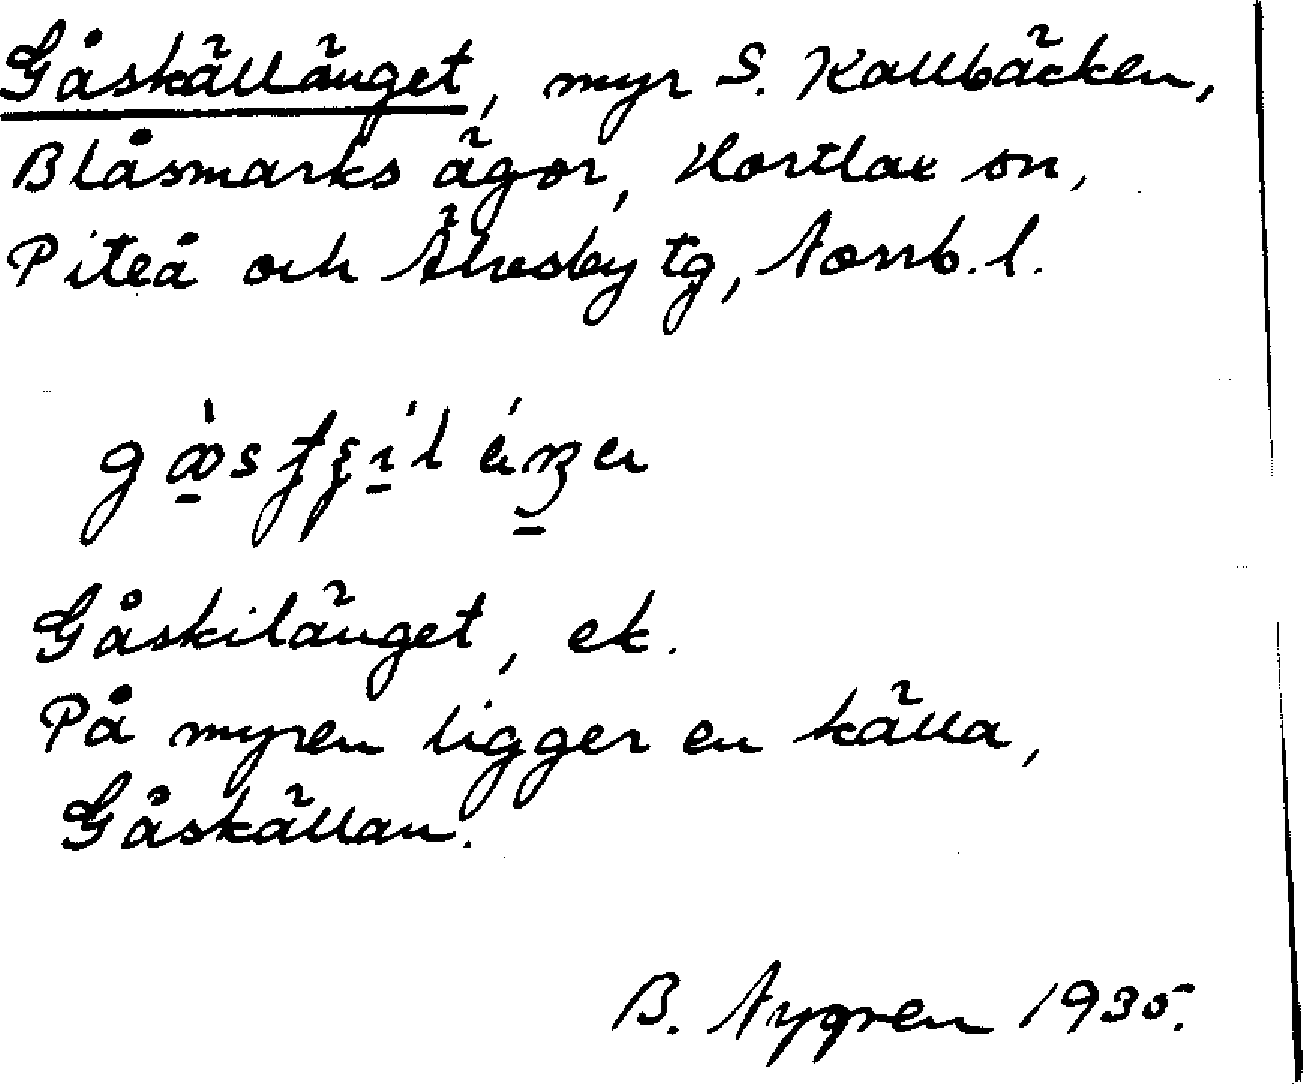 Gåskälländet, myr S. Kallbäcken,
Blåsmarks ägor, Hortlax sn,
Piteå och Älvsby tg, Norrb. l.
Gåskilänget, ek.
På myren ligger en källa,
Gåskällan.
B. Nygren 1935.